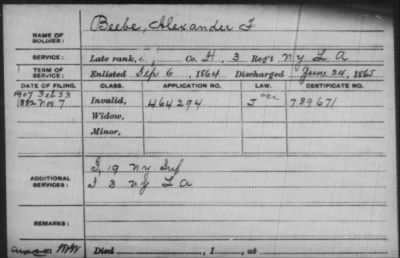 NAME OF SOLDIER: Beebe, Alexander F
SERVICE: Late rank, Co. H, 3 Reg't N Y L A
TERM OF SERVICE: Enlisted Sep 6, 1864 Discharged June 24, 1865
DATE OF FILING. CLASS. APPLICATION NO. LAW. CERTIFICATE NO.
1907 Feb 23
1882 Nov 7 Invalid, 464294 789671
Widow,
Minor,
ADDITIONAL SERVICES: I, 19 N Y Inf
I 3 N Y L A
REMARKS:
Died , 1 , at